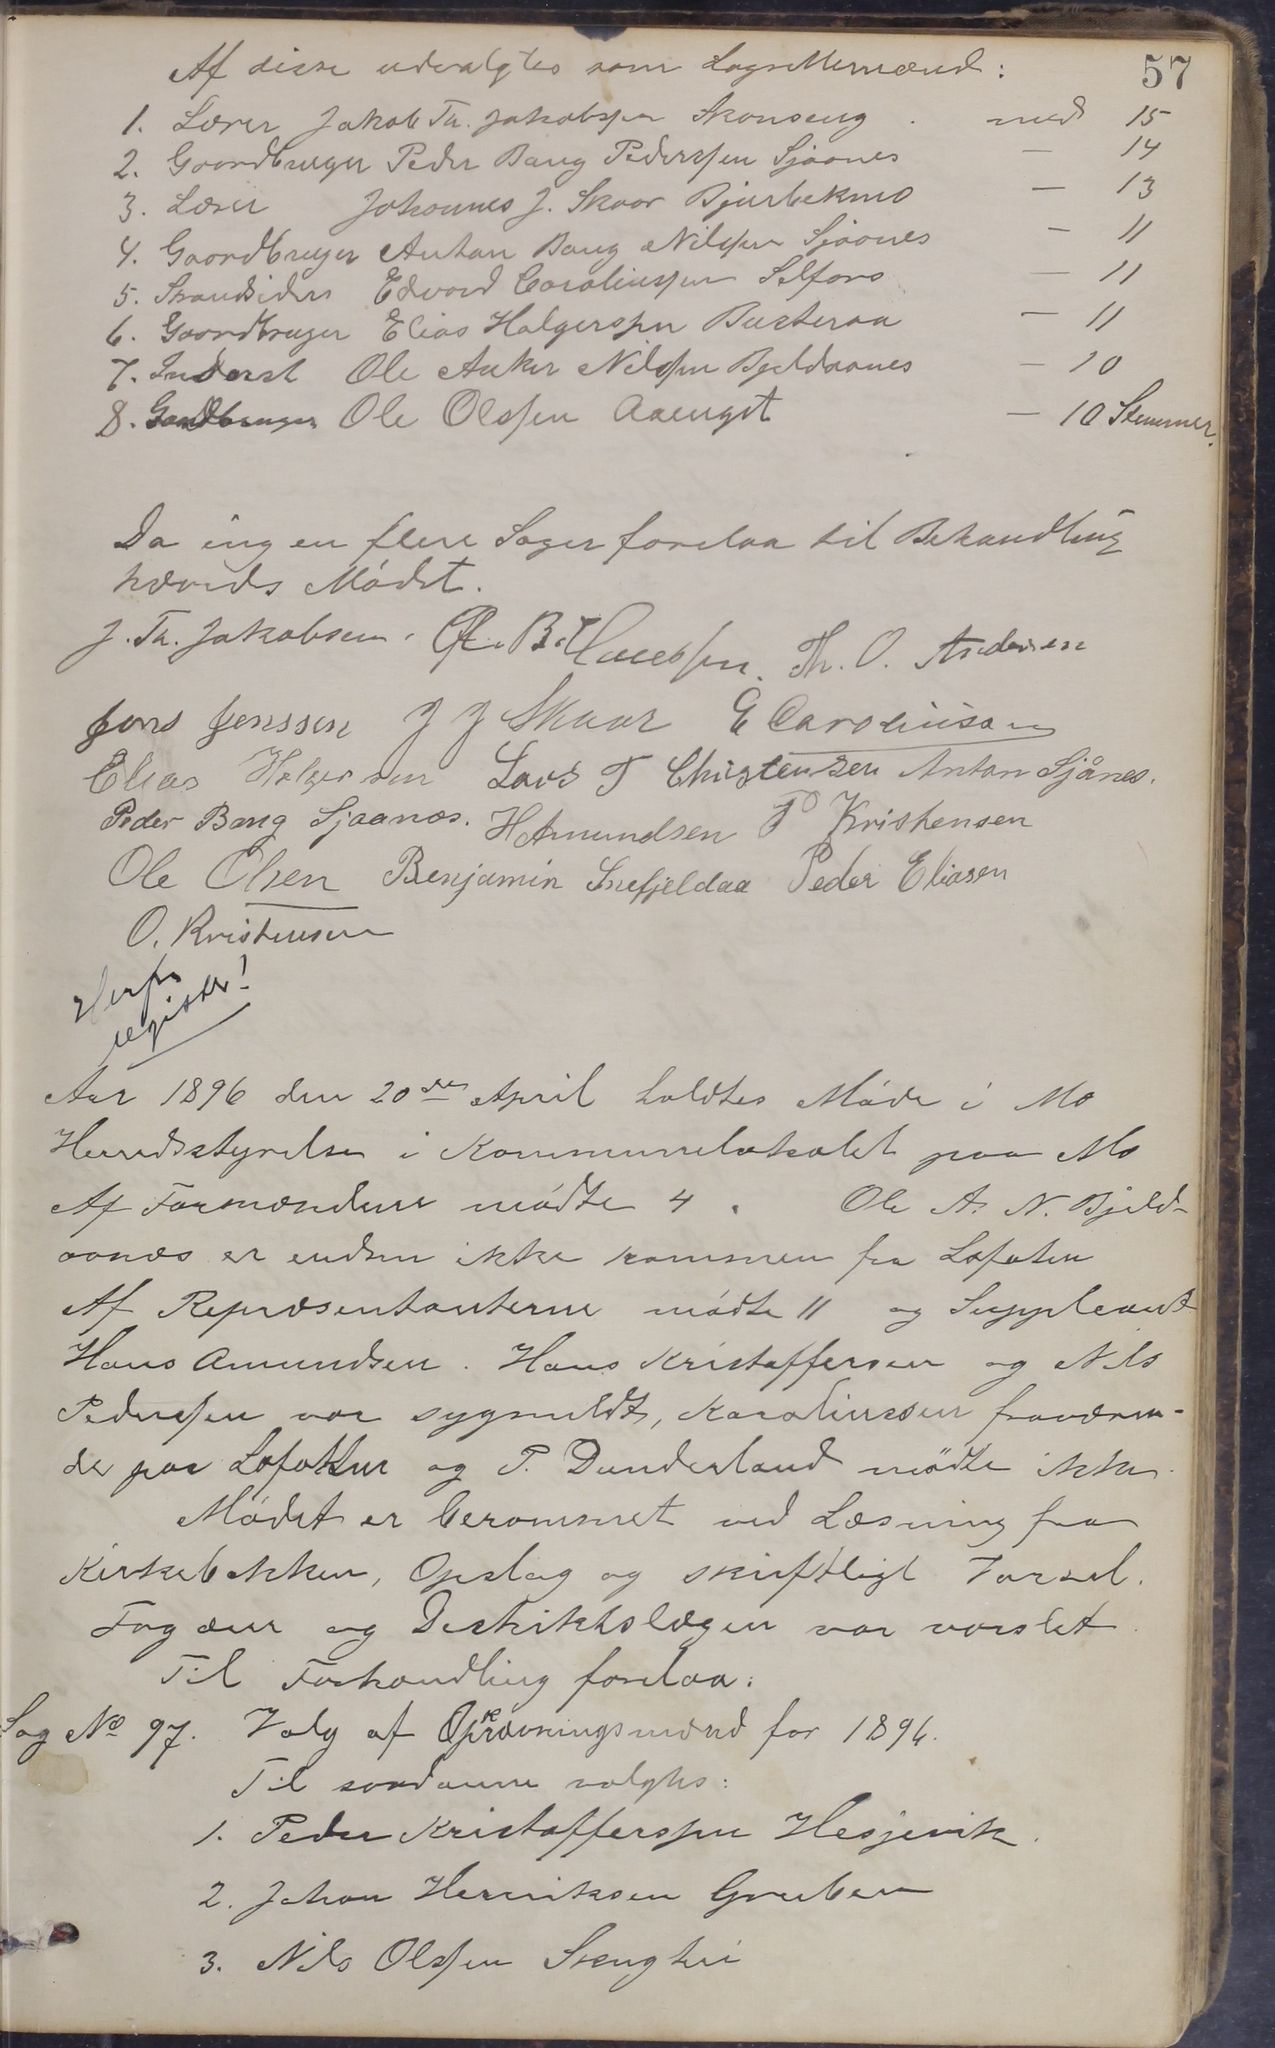 57
Af disse udvalgtes som Lagrettemænd:
1. Lærer Jakob Th. Jakobssen Skonseng . med 15
2. Gaardbruger Peder Bang Pederssen Sjaanes — 14
3. Lærer Johannes J. Skaar Bjerbekmo — 13
4. Gaardbruger Anton Bang Nilssen Sjaanes — 11
5. Strandsidder Edvard Carolinssen Selfors — 11
6. Gaardbruger Elias Holgerssen Busteraa — 11
7. Inderst Ole Anker Nilssen Bjeldaanes — 10
8. Gaardbruger Ole Olssen Aaenget — 10 Stemmer.
Da ingen flere Sager forelaa til Behandling
hævedes Mødet.
J. Th. Jakobsen. Th. O. Andersen
Jens Jenssen J J Skaar E Carolinsen
Elias Holgersen Lars T Christensen Anton Sjånes.
Peder Bang Sjaanes. H Amundsen P Kristensen
Ole Olsen Benjamin Snefjeldaa Peder Eliasen
O. Kristensen
Herfra
register!
Aar 1896 den 20de April holdtes Møde i Mo
Herredsstyrelse i Kommunelokalet paa Mo
Af Formændene mødte 4. Ole A. N. Bjeld-
aanes er endnu ikke kommen fra Lofoten
Af Repræsentanterne mødte 11 og Suppleant
Hans Amundsen. Hans Kristoffersen og Nils
Pederssen var sygmeldt, Karolinssen fraværen-
de paa Lofottur og P. Dunderland mødte ikke.
Mødet er berammet ved Læsning fra
Kirkebakken, Opslag og skriftligt Varsel.
Fogden og Distriktslægen var varslet.
Til Forhandling forelaa:
Sag No 97. Valg af Opkrævningsmænd for 1896.
Til saadanne valgtes:
1. Peder Kristofferssen Hesjevik.
2. Johan Henriksen Gruben
3. Nils Olssen Stenghei